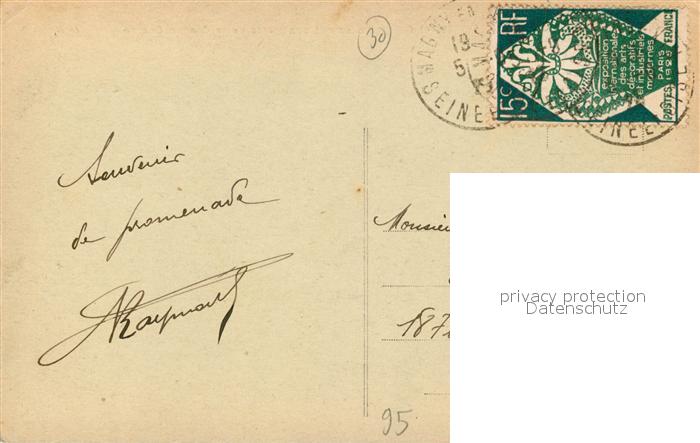 30
MAGNY EN
18
5
SEINE
15c RF
exposition
internationale
des arts
décoratifs
et industriels
modernes
PARIS
1925
POSTES FRANCE
Souvenir
de promenade
Raymond
Monsieur
187
95
privacy protection
Datenschutz